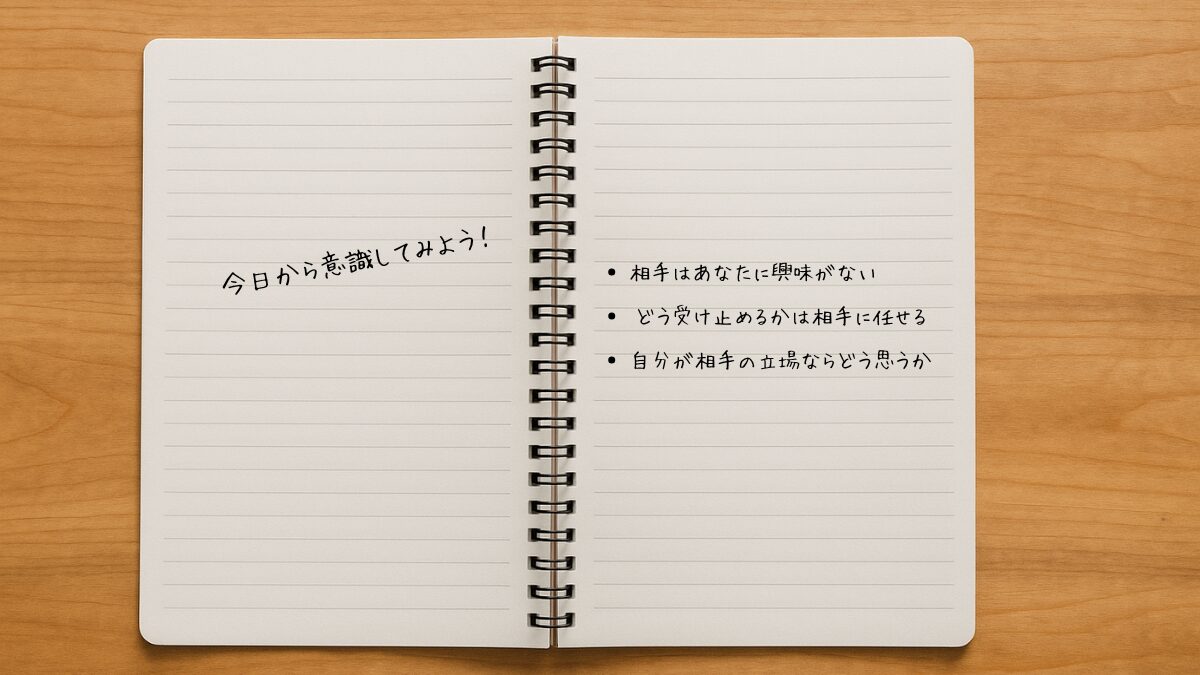 今日から意識してみよう！
• 相手はあなたに興味がない
• どう受け止めるかは相手に任せる
• 自分が相手の立場ならどう思うか